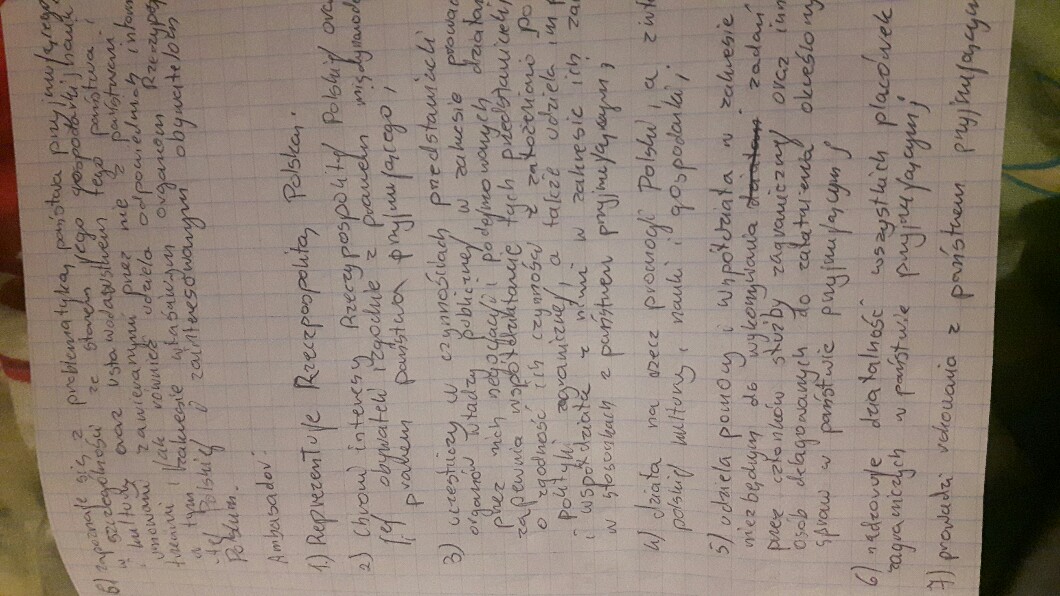 6) zapoznaje się z problematyką państwa przyjmującego
w szczególności ze stanem jego gospodarki, nauki
i kultury oraz ustawodawstwem tego państwa i
umowami zawieranymi przez nie z państwami
trzecimi, jak również udziela odpowiednich
w tym zakresie właściwym organom Rzeczypo
tej Polskiej i zainteresowanym obywatelom
Polskim.
Ambasador:
1) Reprezentuje Rzeczpospolitą Polską.
2) Chroni interesy Rzeczypospolitej Polskiej oraz
jej obywateli zgodnie z prawem międzynarodo
prawem państwa przyjmującego;
3) uczestniczy w czynnościach przedstawicieli
organów władzy publicznej w zakresie prowa
przez nich negocjacji i podejmowanych działań
zapewnia współdziałanie tych przedstawicieli
o zgodność ich czynności z założeniami po
polityki zagranicznej, a także udziela im p
i współdziała z nimi w zakresie ich za
w stosunkach z państwem przyjmującym;
4) działa na rzecz promocji Polski, a zwł
polskiej kultury, nauki i gospodarki;
5) udziela pomocy i współdziała w zakresie
niezbędnym do wykonywania działań zadań
przez członków służby zagranicznej oraz inn
osób delegowanych do załatwienia określony
spraw w państwie przyjmującym;
6) nadzoruje działalność wszystkich placówek
zagranicznych w państwie przyjmującym;
7) prowadzi rokowania z państwem przyjmującym